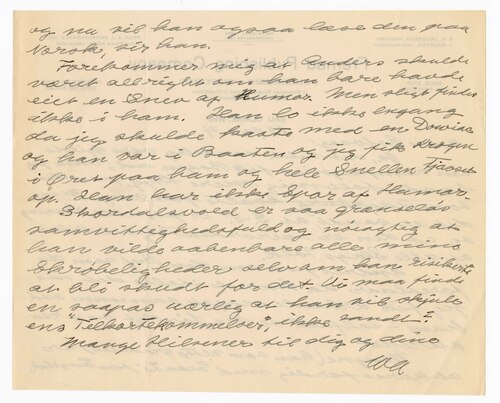 og nu vil han ogsaa læse den paa
Norsk, sir han.
Forekommer mig at Anders skulde
været allright om han bare havde
eiet en Snev af Humor. Men sligt findes
ikke i ham. Han lo ikke engang
da jeg skulde kaste med en Dowiac
og han var i Baaten og jeg fik Krogen
i Øret paa ham og hele Snellen
op. Han har ikke Spor af Humor.
Skordalsvold er saa grænseløs
samvittighedsfuld og nøiagtig at
han vilde aabenbare alle mine
Skrøbeligheder selv om han risikerte
at bli skudt for det. Vi maa finde
en saapas uærlig at han vil skjule
ens "Tilkortekommelser", ikke sandt?
Mange Hilsener til dig og dine
WA